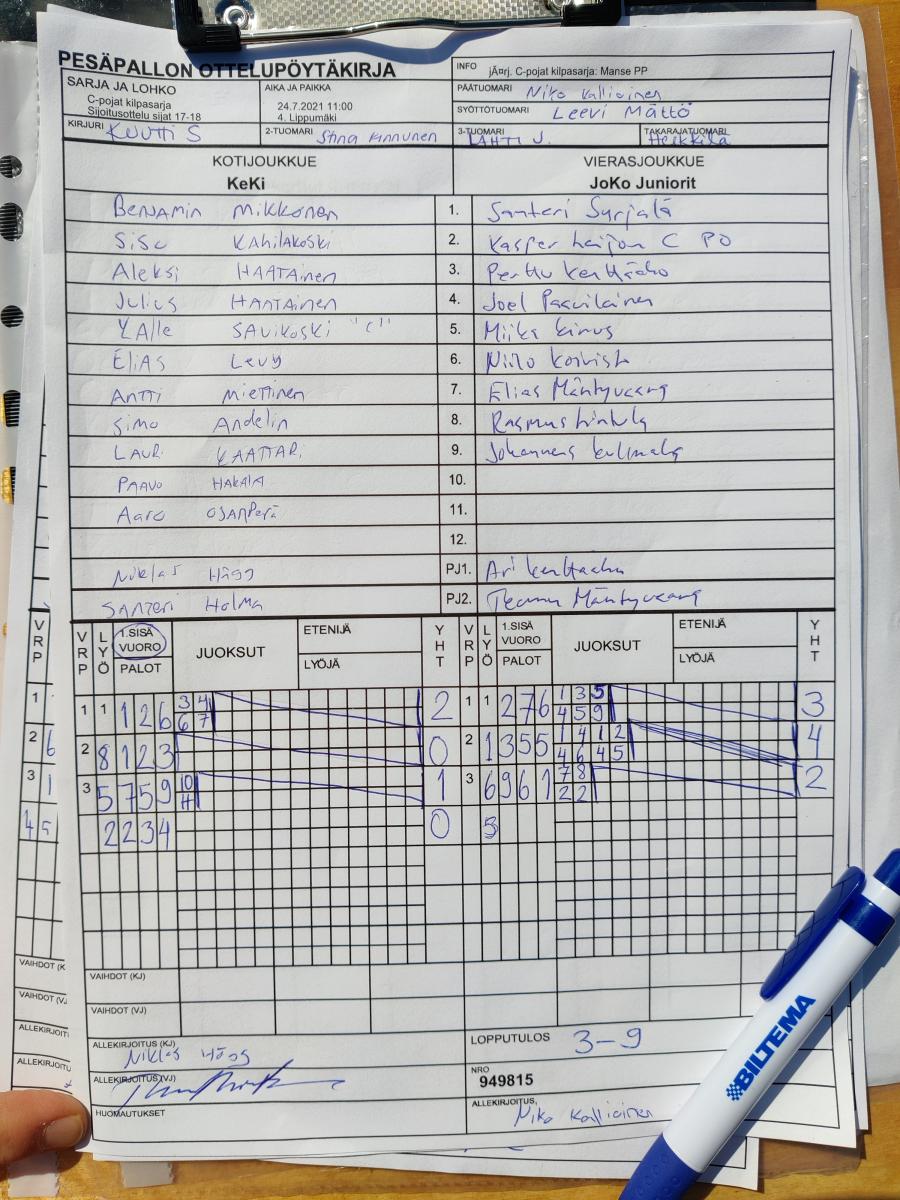 PESÄPALLON OTTELUPÖYTÄKIRJA
INFO jÄ¤rj. C-pojat kilpasarja: Manse PP
SARJA JA LOHKO
C-pojat kilpasarja
Sijoitusottelu sijat 17-18
AIKA JA PAIKKA
24.7.2021 11:00
4. Lippumäki
PÄÄTUOMARI Niko Kallioinen
SYÖTTÖTUOMARI Leevi Mättö
KIRJURI KUUTTI S
2-TUOMARI Stina Kinnunen
3-TUOMARI LAHTI J.
TAKARAJATUOMARI Heikkilä
KOTIJOUKKUE
KeKi
VIERASJOUKKUE
JoKo Juniorit
Benjamin Mikkonen 1. Santeri Surjala
Sisu Kahilakoski 2. Kasper C PO
Aleksi HAATAinen 3. Perttu
Julius HAATAinen 4. Joel Paavilainen
KAlle SAVikoski "C" 5. Miika Kinus
EliAS Levy 6. Niilo Koivisto
Antti Miettinen 7. Elias Mäntyvaara
Simo Andelin 8. Rasmus
LAURi KAATTARi 9. Johannes
PAAVO HAKALA 10.
Aaro OJANPerä 11.
12.
Niklas Hägg PJ1. Ari
SANTERi Holma PJ2. Teemu Mäntyvaara
VRP LYÖ 1.SISÄ VUORO PALOT JUOKSUT ETENIJÄ LYÖJÄ YHT VRP LYÖ PALOT JUOKSUT ETENIJÄ LYÖJÄ YHT
1 1 1 2 6 3 4 2 1 1 2 7 6 1 3 5 3
6 7 4 5 9
2 8 1 2 3 0 2 1 3 5 5 1 4 1 2 4
4 6 4 5
3 5 7 5 9 10 1 3 6 9 6 1 7 8 2
11 2 2
2 2 3 4 0 5
VAIHDOT (KJ)
VAIHDOT (VJ)
ALLEKIRJOITUS (KJ) Niklas Hägg
LOPPUTULOS 3-9
ALLEKIRJOITUS (VJ)
NRO
949815
HUOMAUTUKSET
ALLEKIRJOITUS, Niko Kallioinen
VRP
1
2 6
3 1
4 5
VAIHDOT (K
VAIHDOT (VJ
ALLEKIRJOIT
ALLEKIRJO
BILTEMA